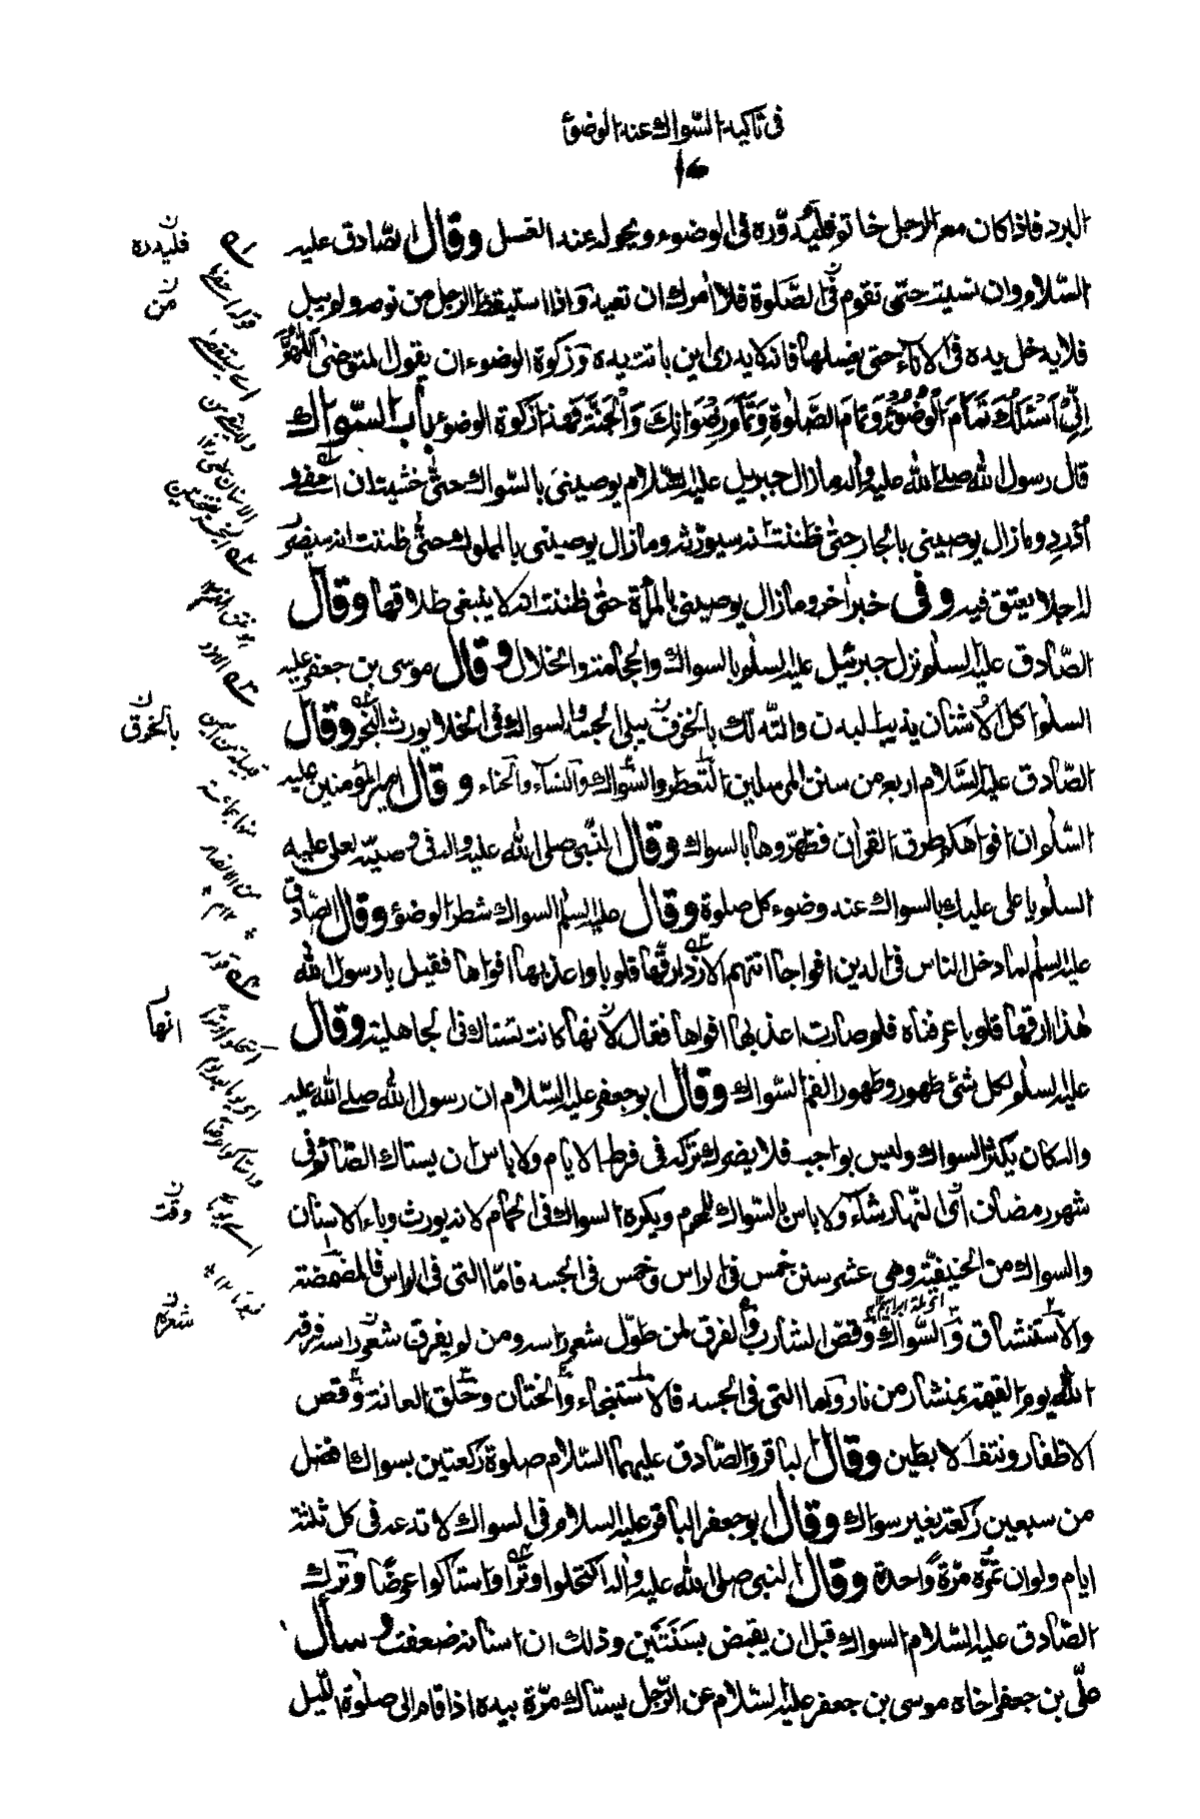 في تاكيد السّواك عند الوضوء
١٤
البرد فاذا كان مع الرجل خاتم فليُدوّره في الوضوء ويحوله عند الغسل وقال الصّادق عليه
السّلام وان نسيت حتّى تقوم في الصَّلوة فلا امرك ان تعيد وَاذا استيقظ الرجل من نومه ولم يبل
فلا يدخل يده في الاناء حتى يغسلها فانه لا يدري اين باتت يده وَزكوة الوضوء ان يقول المتوضى اللّٰهُمَّ
اِنّي اَسْئَلُكَ تَمَامَ الْوُضُوءِ وَتَمَامَ الصَّلٰوةِ وَتَمَامَ رِضْوَانِكَ وَالْجَنَّةَ فهذا زكوة الوضوء باب السّواك
قال رسول اللّٰه صلى اللّٰه عليه واله ما زال جبرئيل عليه السّلام يوصيني بالسّواك حتّى خشيت ان احفى او
أَدرد وما زال يوصيني بالجار حتّى ظننت انه سيورّثه وما زال يوصيني بالمملوك حتّى ظننت انه سيضرب
له اجلا يعتق فيه وفى خبر اخر وما زال يوصيني بالمرأة حتّى ظننت انه لا ينبغي طلاقها وقال
الصّادق عليه السلم نزل جبرئيل عليه السلم بالسواك والحجامة والخلال وقال موسى بن جعفر عليه
السلم اكل الاُشنان يذيب البدن والتّدلّك بالخزف يبلي الجسد والسواك في الخلا يورث البخر وقال
الصّادق عليه السَّلام اربع من سنن المرسلين التّعطّر والسّواك والنساء والحناء وقال امير المؤمنين عليه
السّلم ان افواهكم طرق القران فطهّروها بالسواك وقال النّبي صلى اللّٰه عليه واله في وصيّته لعلى عليه
السلم يا على عليك بالسواك عند وضوء كل صلوة وقال عليه السلم السواك شطر الوضوء وقال الصّادق
عليه السلم لما دخل الناس في الدين افواجا اتتهم الازد ارقّها قلوبا واعذبها افواها فقيل يا رسول اللّٰه
هٰذا ارقّها قلوبا عرفناه فلم صارت اعذبها افواها فقال لانها كانت تستاك في الجاهلية وقال
عليه السلم لكل شئ طهور وطهور الفم السّواك وقال ابو جعفر عليه السّلام ان رسول اللّٰه صلى اللّٰه عليه
واله كان يكثر السواك وليس بواجب فلا يضرك تركه في فرط الايام ولا باس ان يستاك الصّائم في
شهر رمضان اىّ النّهار شاء ولا باس بالسّواك للمحرم ويكره السواك في الحمّام لانه يورث وباء الاسنان
والسواك من الحنيفيّة وهي عشر سنن خمس في الراس وخمس في الجسد فامّا التى في الراس فالمضمضة
والاستنشاق وَالسّواك وقصّ الشارب والفرق لمن طوّل شعر راسه ومن لم يفرق شعر راسه فرقه
اللّٰه يوم القيمة بمنشار من نار وَاما التى في الجسد فالاستنجاء وَالختان وحَلق العانة وَقص
الاظفار ونتف الابطين وقال الباقر والصّادق عليهما السّلام صلوة ركعتين بسواك افضل
من سبعين ركعة بغير سواك وقال ابو جعفر الباقر عليه السلام في السواك لا تدعه في كل ثلثة
ايام ولو ان تمرّه مرّة وَاحدة وقال النبي صلى اللّٰه عليه واله اكتحلوا وترًا واستاكوا عرضًا وترك
الصّادق عليه السّلام السواك قبل ان يقبض بسَنَتَين وذلك ان اسنانه ضعفت وسأل
علىّ بن جعفر اخاه موسى بن جعفر عليه السّلام عن الرّجل يستاك مرّة بيده اذا قام الى صلوة اللّيل
فليدره
من
بالخزق
انها
وقت
شعره